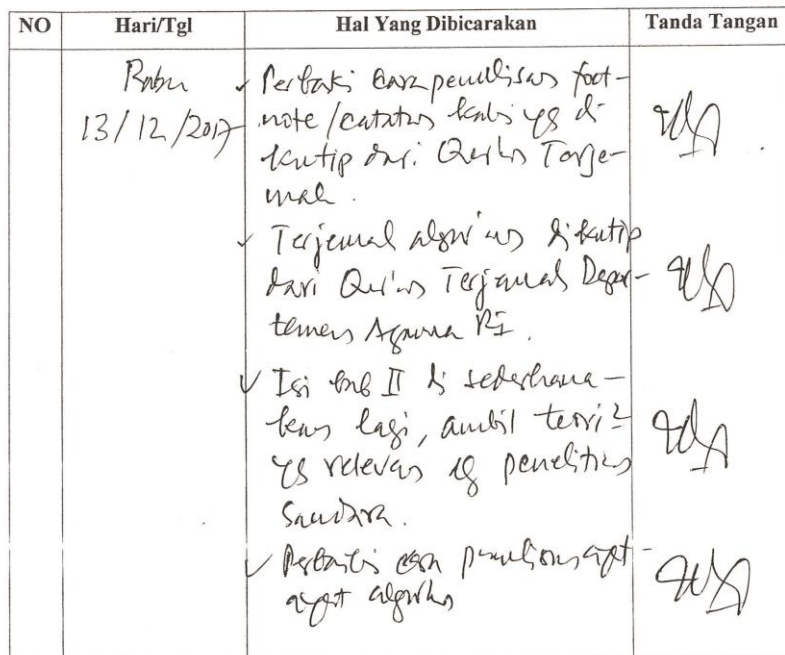 NO Hari/Tgl Hal Yang Dibicarakan Tanda Tangan
Rabu
13/12/2017
✓ Perbaiki cara penulisan foot-
note/catatan kaki yg di
kutip dari Qur'an Terje-
mah.
✓ Terjemah alqur'an di kutip
dari Qur'an Terjemah Depar-
temen Agama RI.
✓ Isi bab II di sederhana-
kan lagi, ambil teori2
yg relevan dg penelitian
Saudara.
✓ Perbaiki cara penulisan ayat-
ayat alqur'an